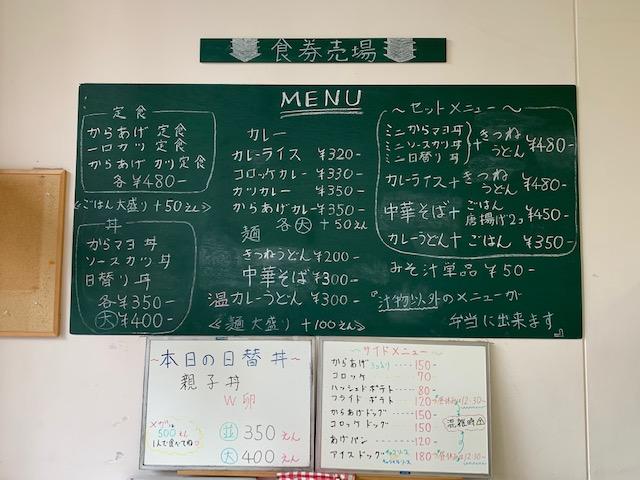 食券売場
MENU
定食
からあげ 定食
一口カツ 定食
からあげ カツ 定食
各¥480-
《ごはん大盛り +50えん》
丼
からマヨ 丼
ソースカツ 丼
日替り 丼
各¥350-
大¥400-
カレー
カレーライス ¥320-
コロッケカレー ¥330-
カツカレー ¥350-
からあげカレー ¥350-
各大 +50えん
麺
きつねうどん ¥200-
中華そば ¥300-
温カレーうどん ¥300-
《麺 大盛り +100えん》
~セットメニュー~
ミニからマヨ丼
ミニソースカツ丼
ミニ日替り 丼
+きつねうどん ¥480-
カレーライス+きつねうどん ¥480-
中華そば+ごはん 唐揚げ2コ ¥450-
カレーうどん+ごはん ¥350-
みそ汁単品 ¥50-
『汁物以外のメニューが
弁当に出来ます』
~本日の日替丼~
親子丼
W卵
メガは
500えん
1人で食べてね
並 350えん
大 400えん
~サイドメニュー~
からあげ 150-
コロッケ 70
ハッシュドポテト 80-
フライドポテト 120
からあげドッグ 150
コロッケドッグ 150
混雑時
あげパン 120-
アイスドッグ 180